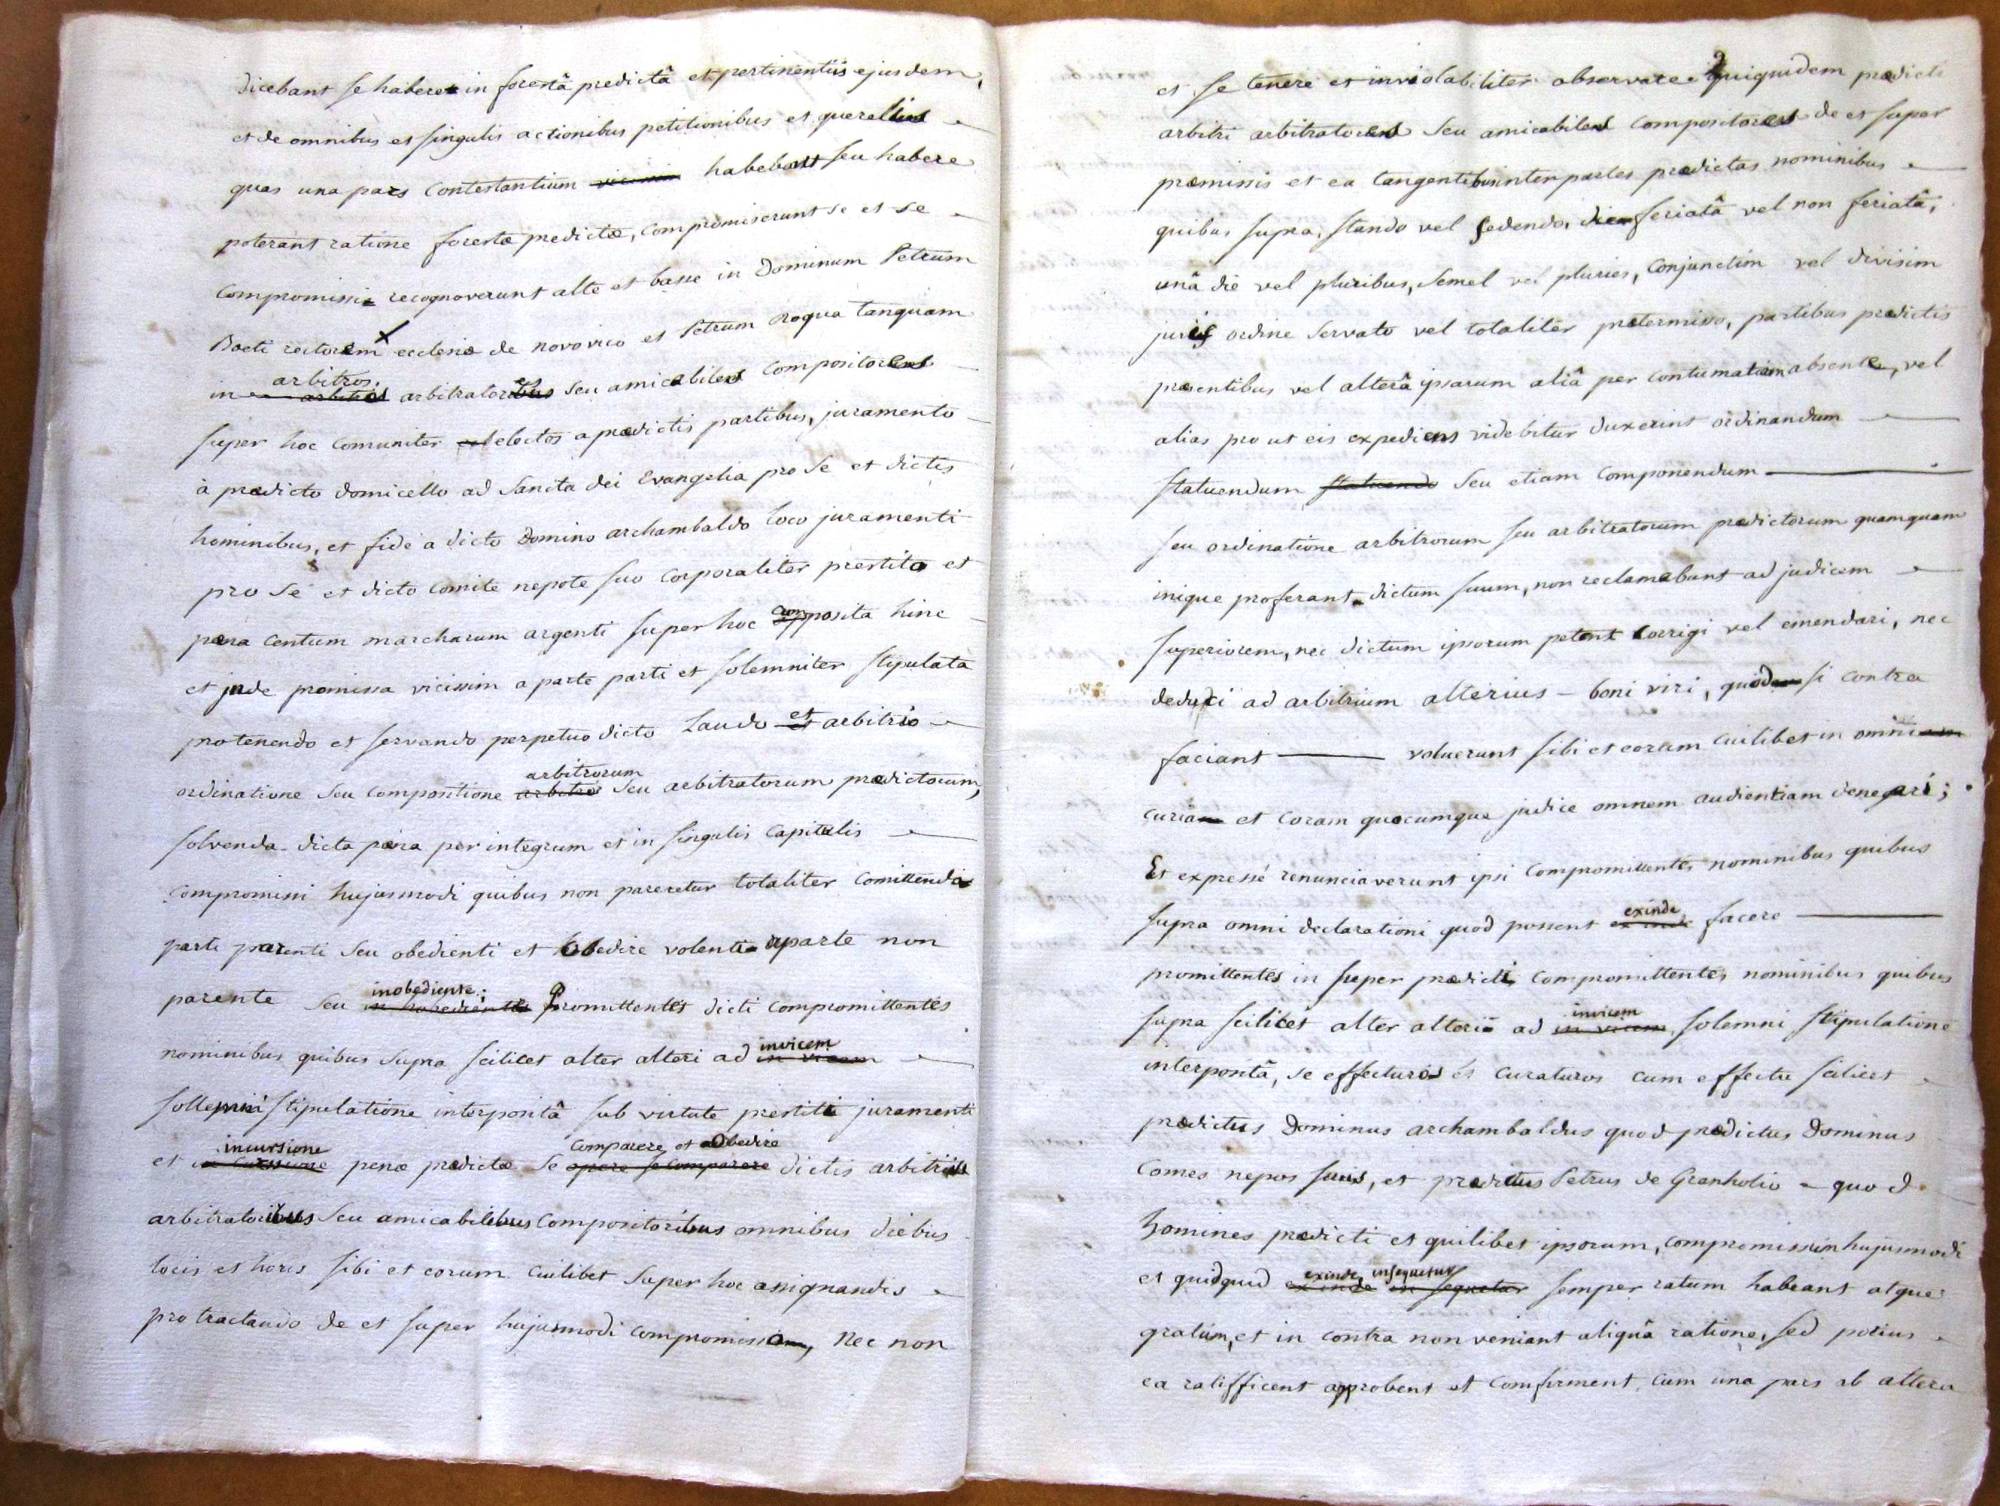 dicebant se habere in forestâ predictâ et pertinentiis ejusdem,
et de omnibus et singulis actionibus petitionibus et querelis
quas una pars contestantium habebant seu habere
poterant ratione forestæ predictæ, compromiserunt se et se
compromissi recognoverunt alte et basse in Dominum Petrum
Boeti rectorem ecclesiæ de novovico et Petrum Roqua tanquam
in arbitros, arbitratores seu amicabiles compositores
super hoc comuniter electos a predictis partibus, juramento
à prædicto domicello ad Sancta dei Evangelia pro se et dictis
hominibus, et fide a dicto Domino archambaldo loco juramenti
pro se et dicto comite nepote suo corporaliter prestito et
pæna centum marcharum argenti super hoc apposita hinc
et inde promissa vicissim a parte parti et solemniter stipulata
pro tenendo et servando perpetuo dicto Laudo et arbitrio
ordinatione seu compositione arbitrorum seu arbitratorum prædictorum,
solvenda dicta pæna per integrum et in singulis capitulis
compromissi hujusmodi quibus non pareretur totaliter comittenda
parti parenti seu obedienti et obedire volenti a parte non
parente seu inobediente; promittentes dicti compromittentes
nominibus quibus supra scilicet alter alteri ad invicem
sollemni stipulatione interpositâ sub virtute prestiti juramenti
et incursione penæ predictæ se comparere et obedire dictis arbitris
arbitratoribus seu amicabilibus compositoribus omnibus diebus
locis et horis sibi et eorum cuilibet super hoc assignandis
pro tractando de et super hujusmodi compromisso, nec non
2
et se tenere et inviolabiliter observare quiquidem prædicti
arbitri arbitratores seu amicabiles compositores de et super
præmissis et ea tangentibus inter partes prædictas nominibus
quibus supra, stando vel sedendo, die feriatâ vel non feriatâ,
unâ die vel pluribus, semel vel pluries, conjunctim vel divisim
juris ordine servato vel totaliter prætermisso, partibus prædictis
præsentibus vel alterâ ipsarum aliâ per contumatiam absente, vel
alias prout eis expediens videbitur duxerint ordinandum
statuendum seu etiam componendum
seu ordinatione arbitrorum seu arbitratorum prædictorum quamquam
inique proferant dictum suum, non reclamabunt ad judicem
superiorem, nec dictum ipsorum petent corrigi vel emendari, nec
deduci ad arbitrium alterius - boni viri, quod si contra
faciant voluerunt sibi et eorum cuilibet in omni
curiâ et coram quocumque judice omnem audientiam denegari;
Et expressé renunciaverunt ipsi compromittentes nominibus quibus
supra omni declarationi quod possent exinde facere
promittentes in super prædicti compromittentes nominibus quibus
supra scilicet alter alteri ad invicem solemni stipulatione
interpositâ, se effecturos et curaturos cum effectu scilicet
prædictus Dominus archambaldus quod prædictus Dominus
Comes nepos suus, et prædictus Petrus de Granholio - quod
homines prædicti et quilibet ipsorum, compromissum hujusmodi
et quidquid exinde insequetur semper ratum habeant atque
gratum, et in contra non veniant aliquâ ratione, sed potius
ea ratifficent approbent et comfirment, cum una pars ab altera